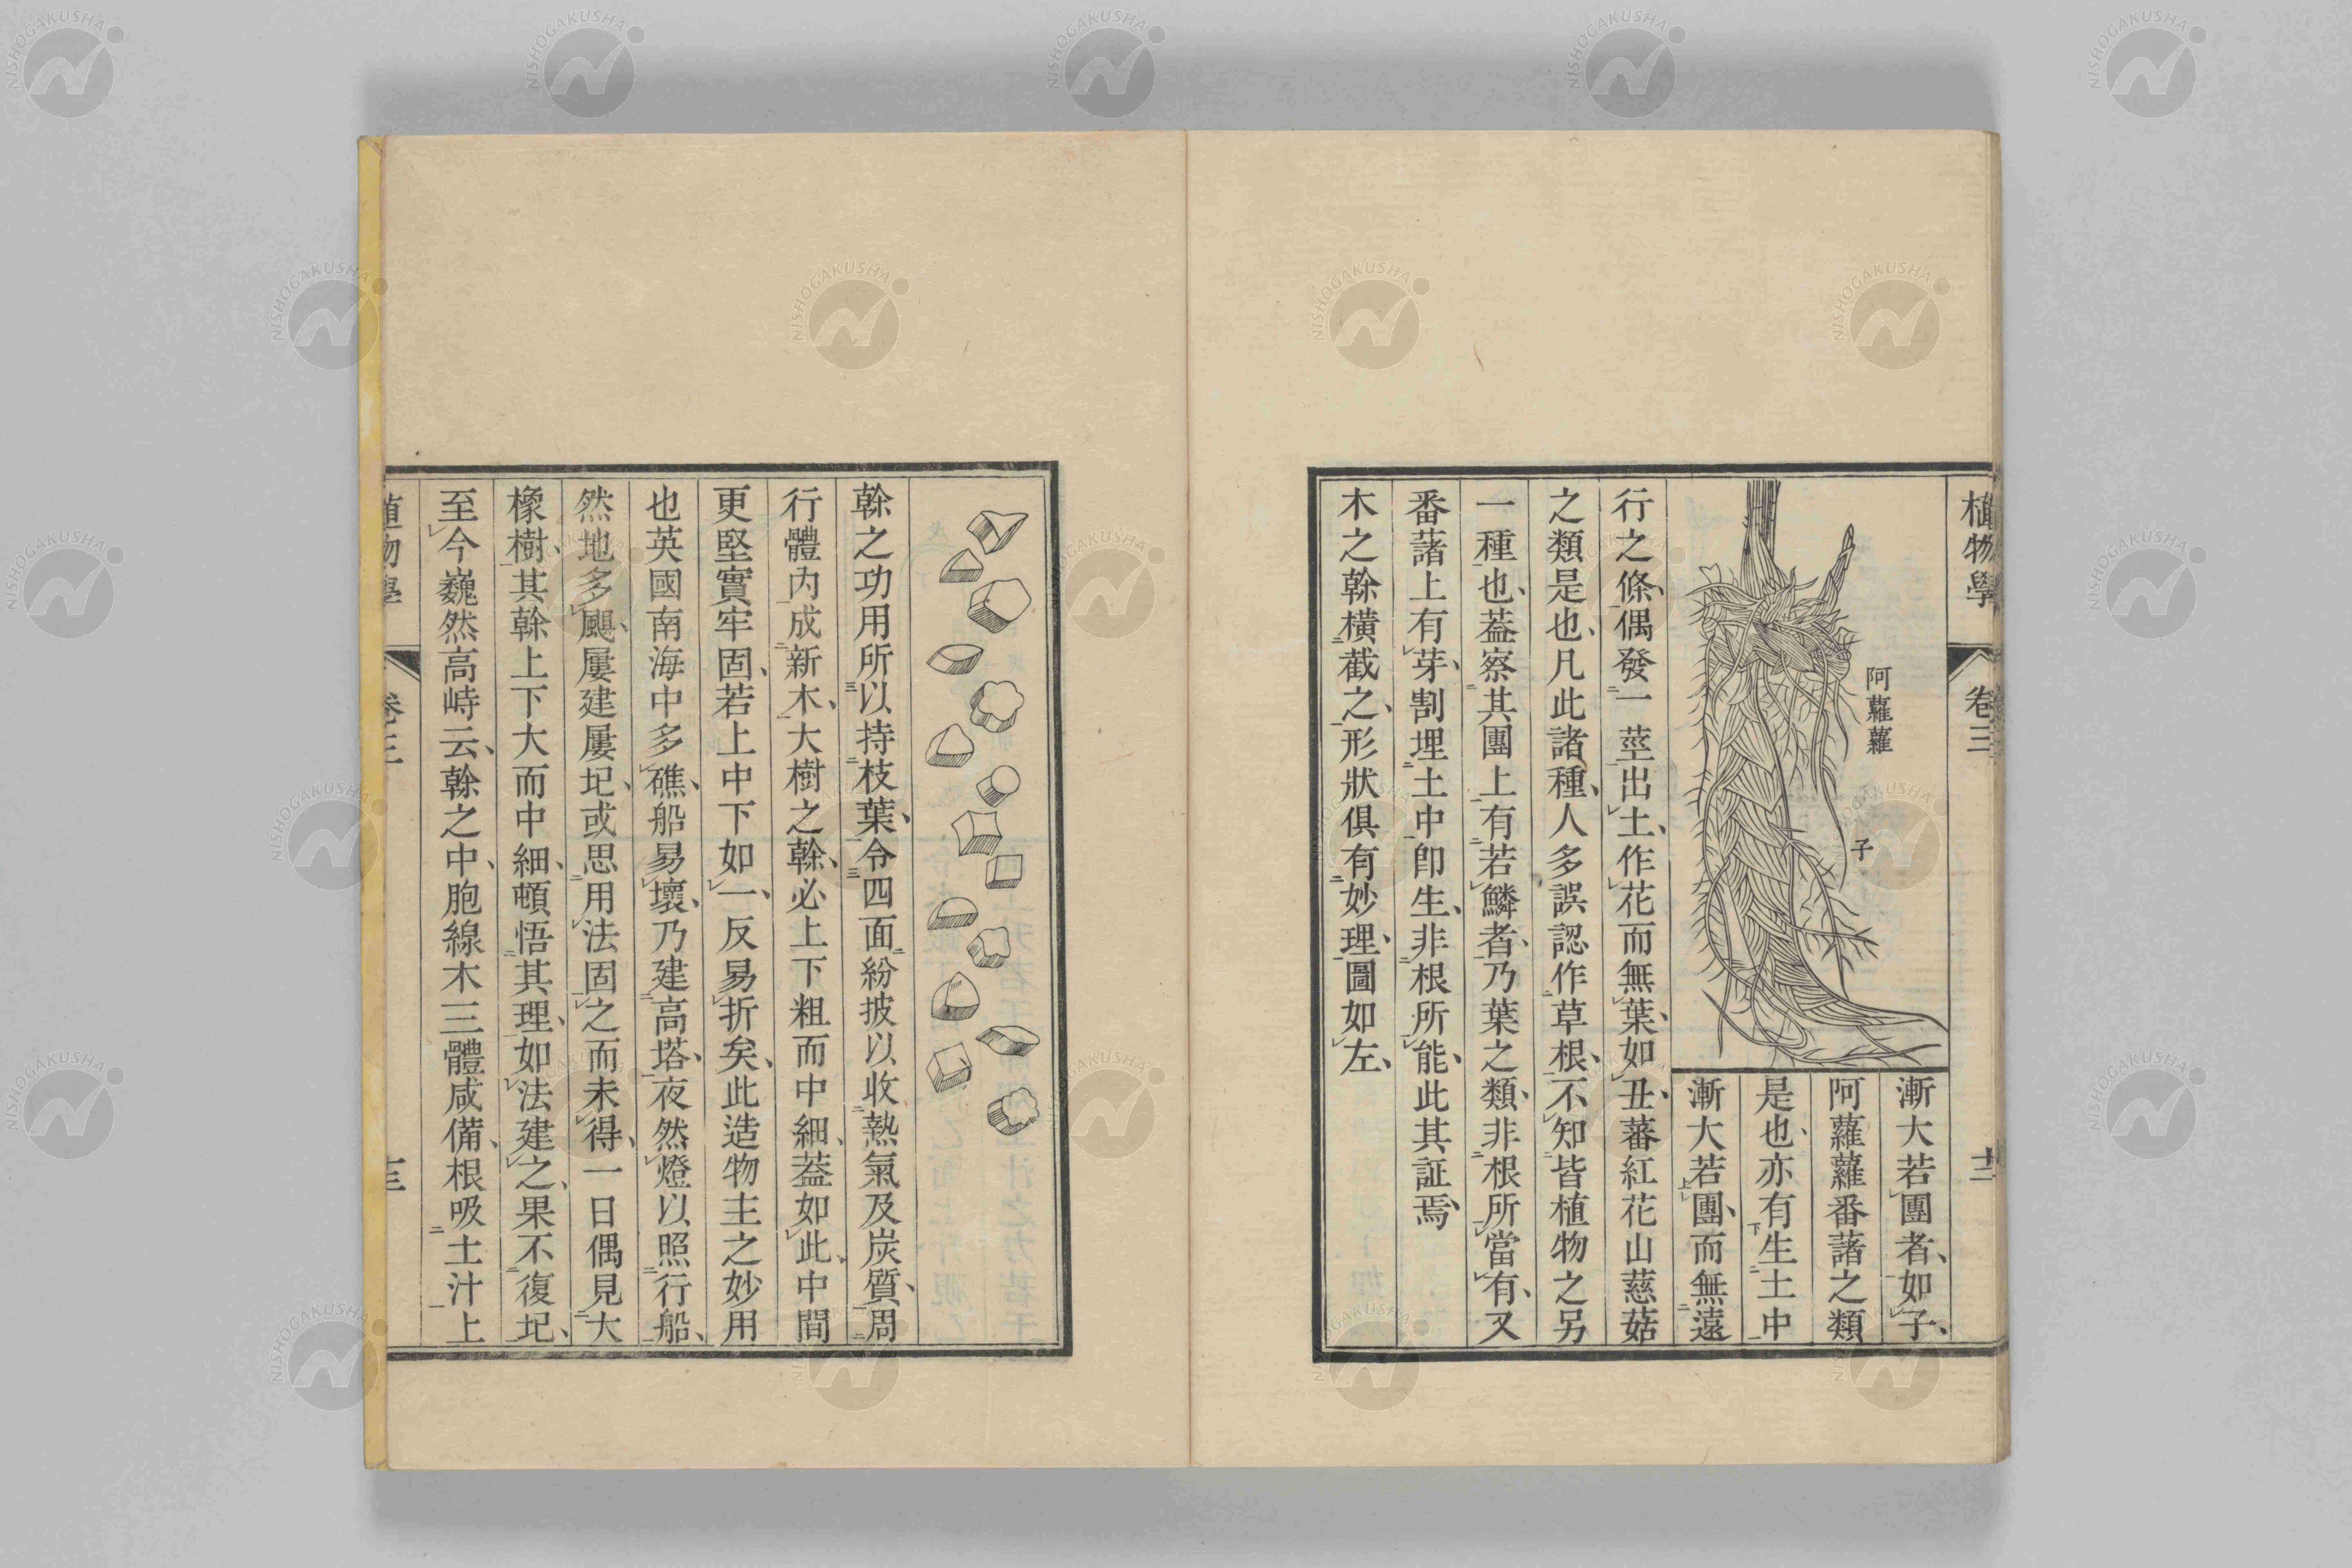 植物學 卷三 十二
阿蘿蘿
子
漸大若團者、如子、
阿蘿蘿番藷之類
是也、亦有生土中
漸大若團、而無遠
行之條、偶發一莖出土、作花而無葉、如丑、蕃紅花山慈菇
之類是也、凡此諸種、人多誤認作草根、不知皆植物之另
一種也、蓋察其團上有若鱗者、乃葉之類、非根所當有、又
番藷上有芽、割埋土中卽生、非根所能、此其証焉、
木之榦橫截之、形狀俱有妙理、圖如左、
榦之功用所以持枝葉、令四面紛披以收熱氣及炭質、周
行體內成新木、大樹之榦、必上下粗而中細、蓋如此、中間
更堅實牢固、若上中下如一、反易折矣、此造物主之妙用
也英國南海中多礁、船易壞、乃建高塔、夜然燈以照行船、
然地多颶、屢建屢圮、或思用法固之而未得、一日偶見大
橡樹、其榦上下大而中細、頓悟其理、如法建之、果不復圮、
至今巍然高峙云、榦之中、胞線木三體咸備、根吸土汁上
植物學 卷三 十三
NISHOGAKUSHA